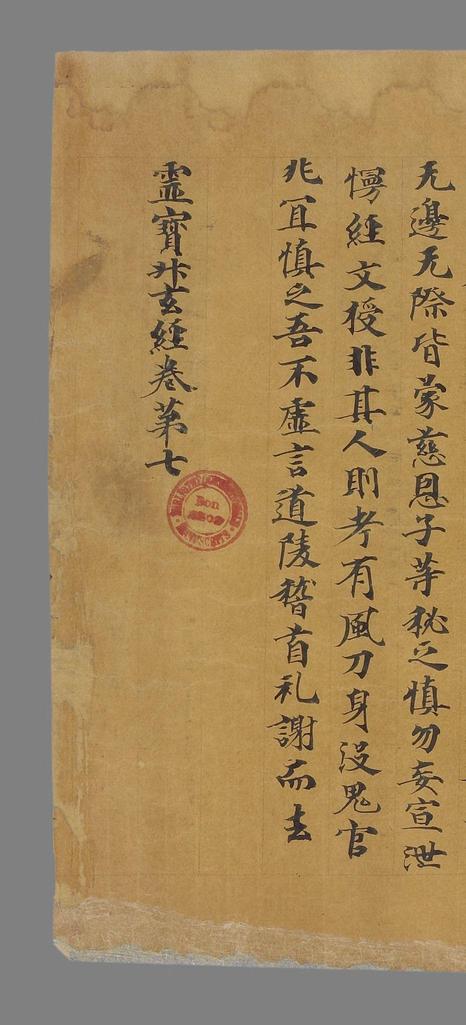 无邊无際皆蒙慈恩子等秘之慎勿妄宣泄
慢經文授非其人則考有風刀身没鬼官
兆冝慎之吾不虛言道陵稽首礼謝而去
靈寳昇玄經卷第七
Don